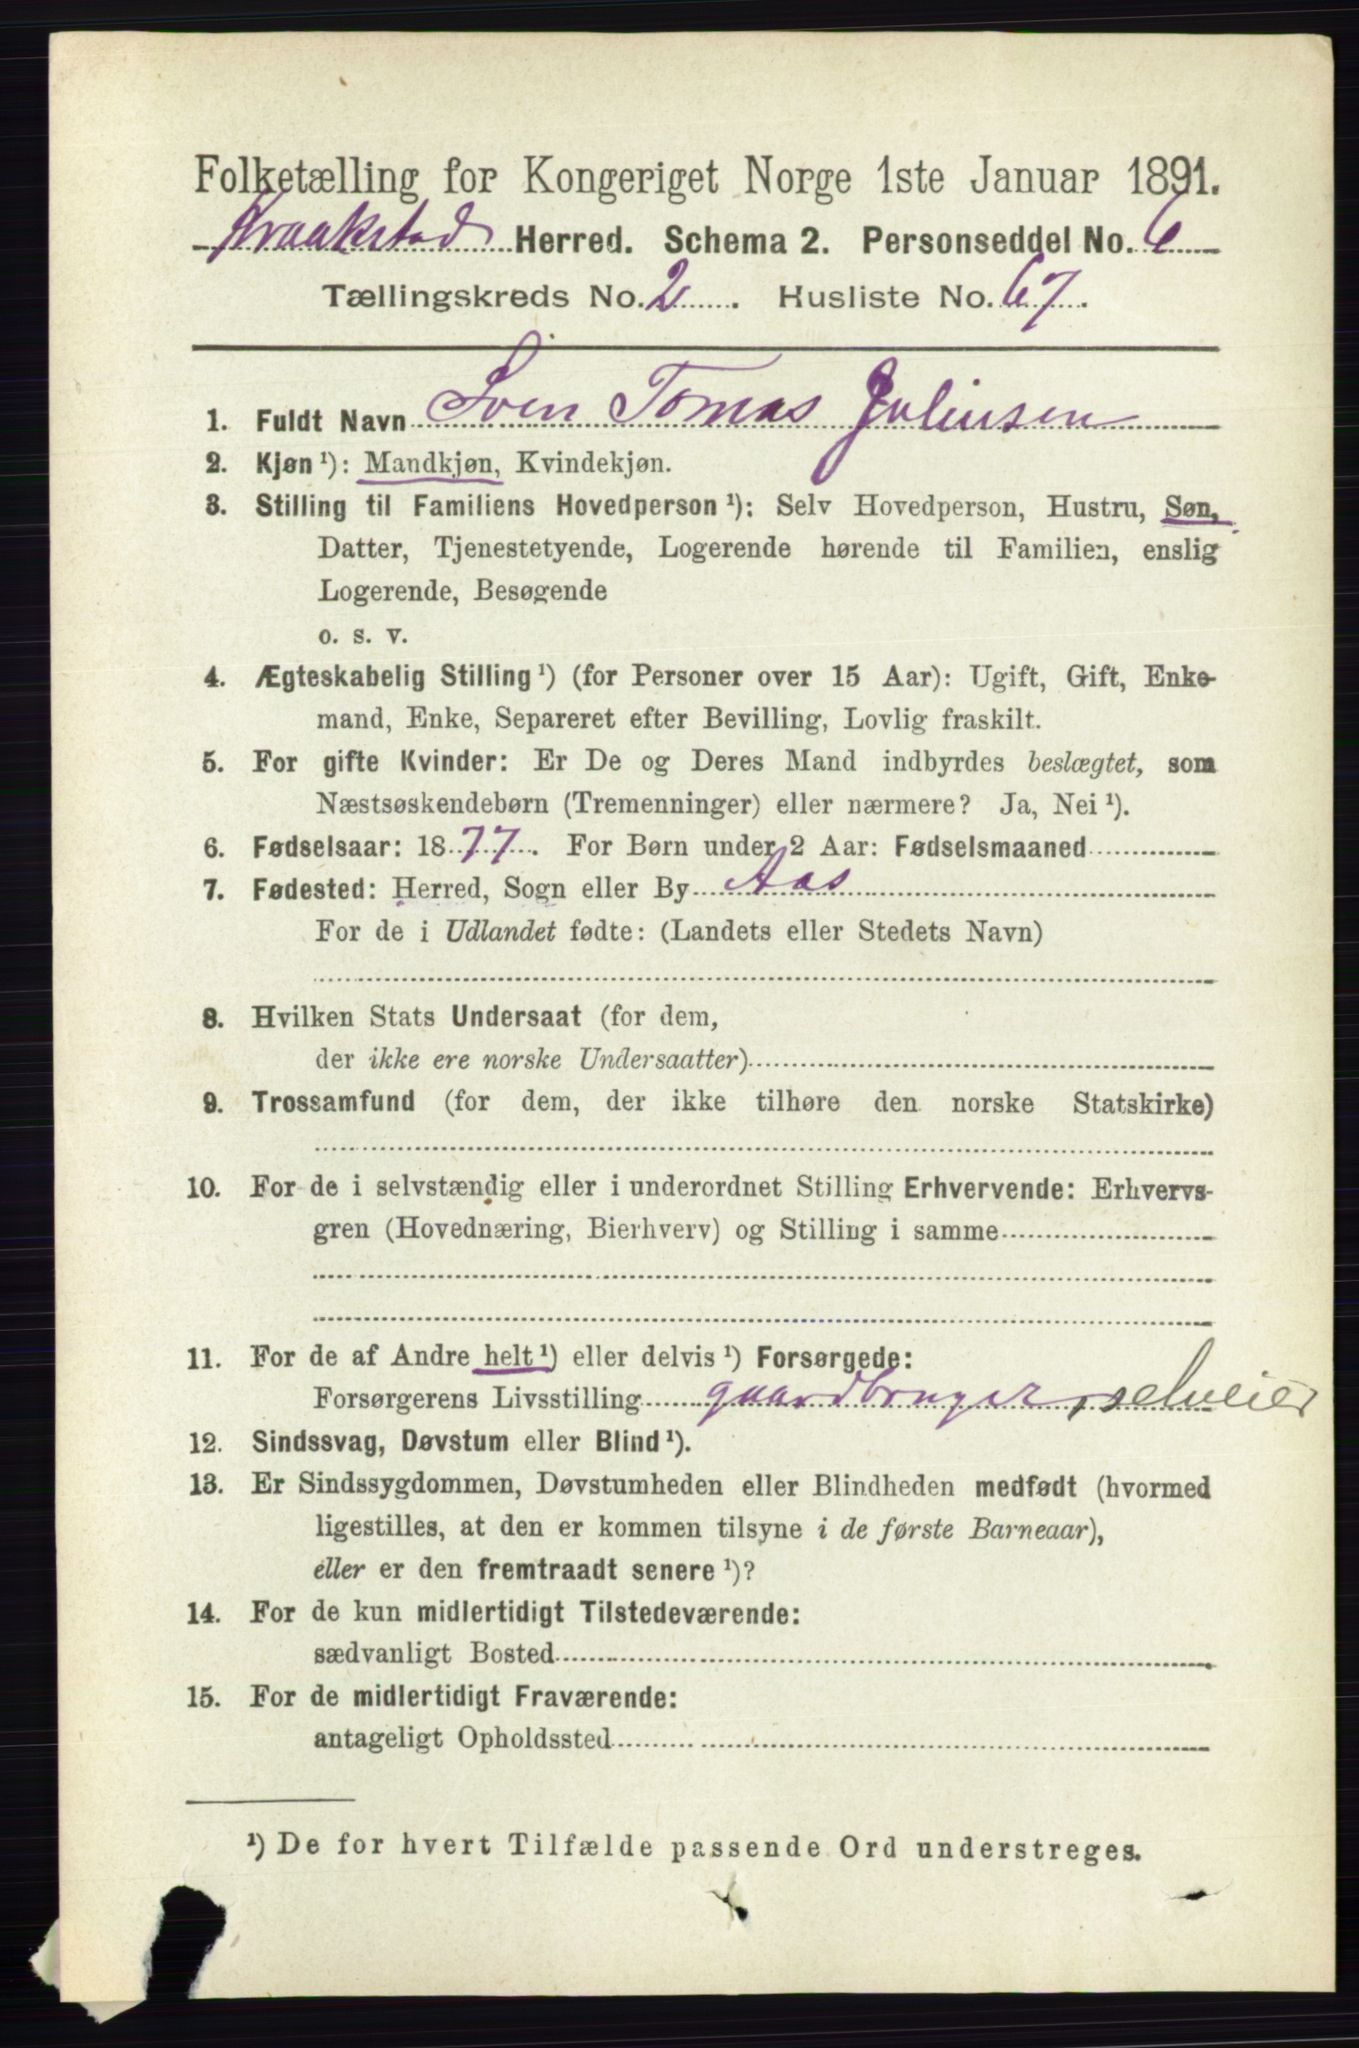 Folketælling for Kongeriget Norge 1ste Januar 1891.
Kraakstad Herred. Schema 2. Personseddel No. 6
Tællingskreds No. 2. Husliste No. 67.
1. Fuldt Navn Sven Tomas Juliusen
2. Kjøn¹): Mandkjøn, Kvindekjøn.
3. Stilling til Familiens Hovedperson¹): Selv Hovedperson, Hustru, Søn,
Datter, Tjenestetyende, Logerende hørende til Familien, enslig
Logerende, Besøgende
o. s. v.
4. Ægteskabelig Stilling¹) (for Personer over 15 Aar): Ugift, Gift, Enke-
mand, Enke, Separeret efter Bevilling, Lovlig fraskilt.
5. For gifte Kvinder: Er De og Deres Mand indbyrdes beslægtet, som
Næstsøskendebørn (Tremenninger) eller nærmere? Ja, Nei¹).
6. Fødselsaar: 1877. For Børn under 2 Aar: Fødselsmaaned
7. Fødested: Herred, Sogn eller By Aas
For de i Udlandet fødte: (Landets eller Stedets Navn)
8. Hvilken Stats Undersaat (for dem,
der ikke ere norske Undersaatter)
9. Trossamfund (for dem, der ikke tilhøre den norske Statskirke)
10. For de i selvstændig eller i underordnet Stilling Erhvervende: Erhvervs-
gren (Hovednæring, Bierhverv) og Stilling i samme
11. For de af Andre helt¹) eller delvis¹) Forsørgede:
Forsørgerens Livsstilling gaardbruger, selveier
12. Sindssvag, Døvstum eller Blind¹).
13. Er Sindssygdommen, Døvstumheden eller Blindheden medfødt (hvormed
ligestilles, at den er kommen tilsyne i de første Barneaar),
eller er den fremtraadt senere¹)?
14. For de kun midlertidigt Tilstedeværende:
sædvanligt Bosted
15. For de midlertidigt Fraværende:
antageligt Opholdssted
¹) De for hvert Tilfælde passende Ord understreges.